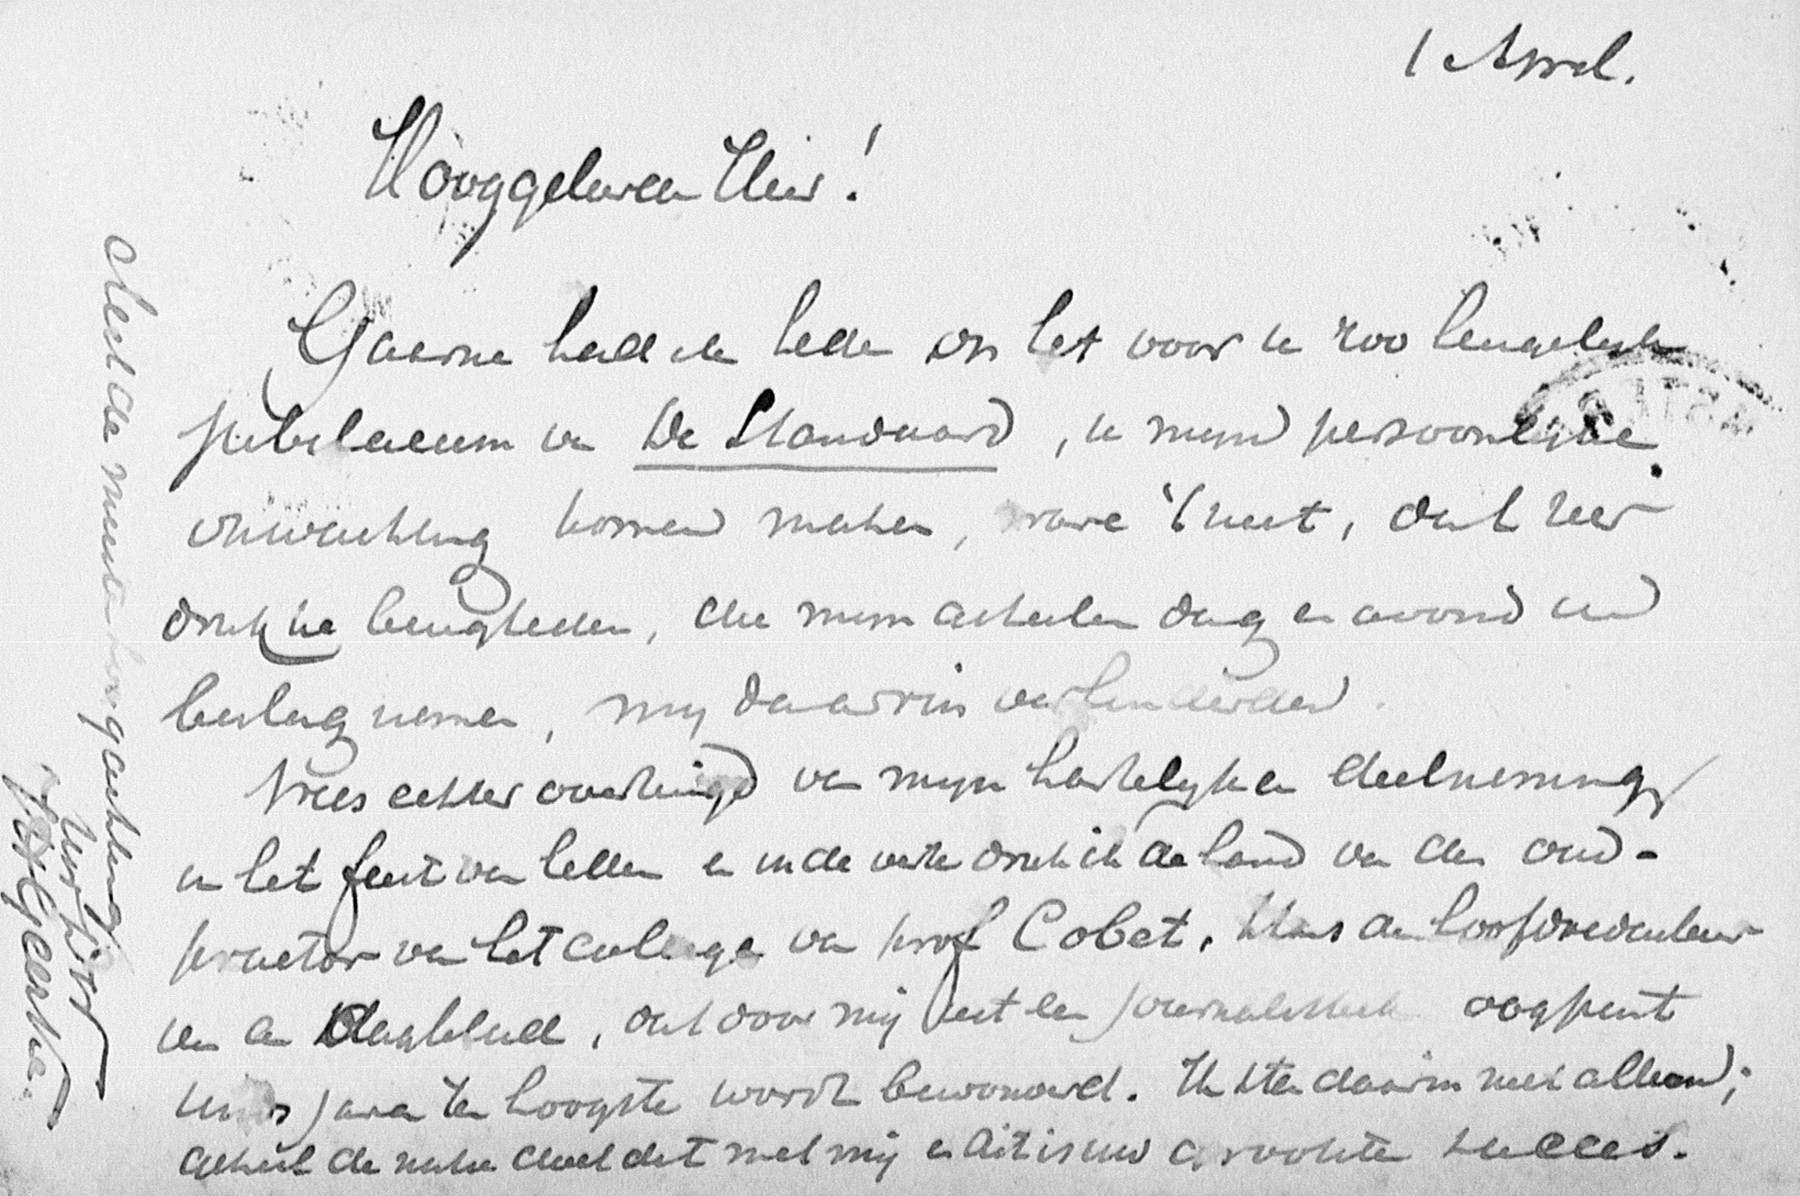 1 April.
Hooggeleerde Heer!
Gaarne had ik heden op het voor u zoo heugelijk
jubilaeum van De Standaard, u mijn persoonlijke
opwachting komen maken, ware 't niet, dat zeer
drukke bezigheden, die mijn geheelen dag en avond in
beslag nemen, mij daarin verhinderden.
Wees echter overtuigd van mijn hartelijke deelneming
in het feest van heden en in de verte druk ik de hand van den oud-
praetor van het college van prof Cobet, thans den hoofdredacteur
van een dagblad, dat door mij uit een journalistiek oogpunt
sinds jaren ten hoogste wordt bewonderd. Ik sta daarin niet alleen;
geheel de natie doet dat met mij en dit is uw grootste succes.
Met de meeste hoogachting